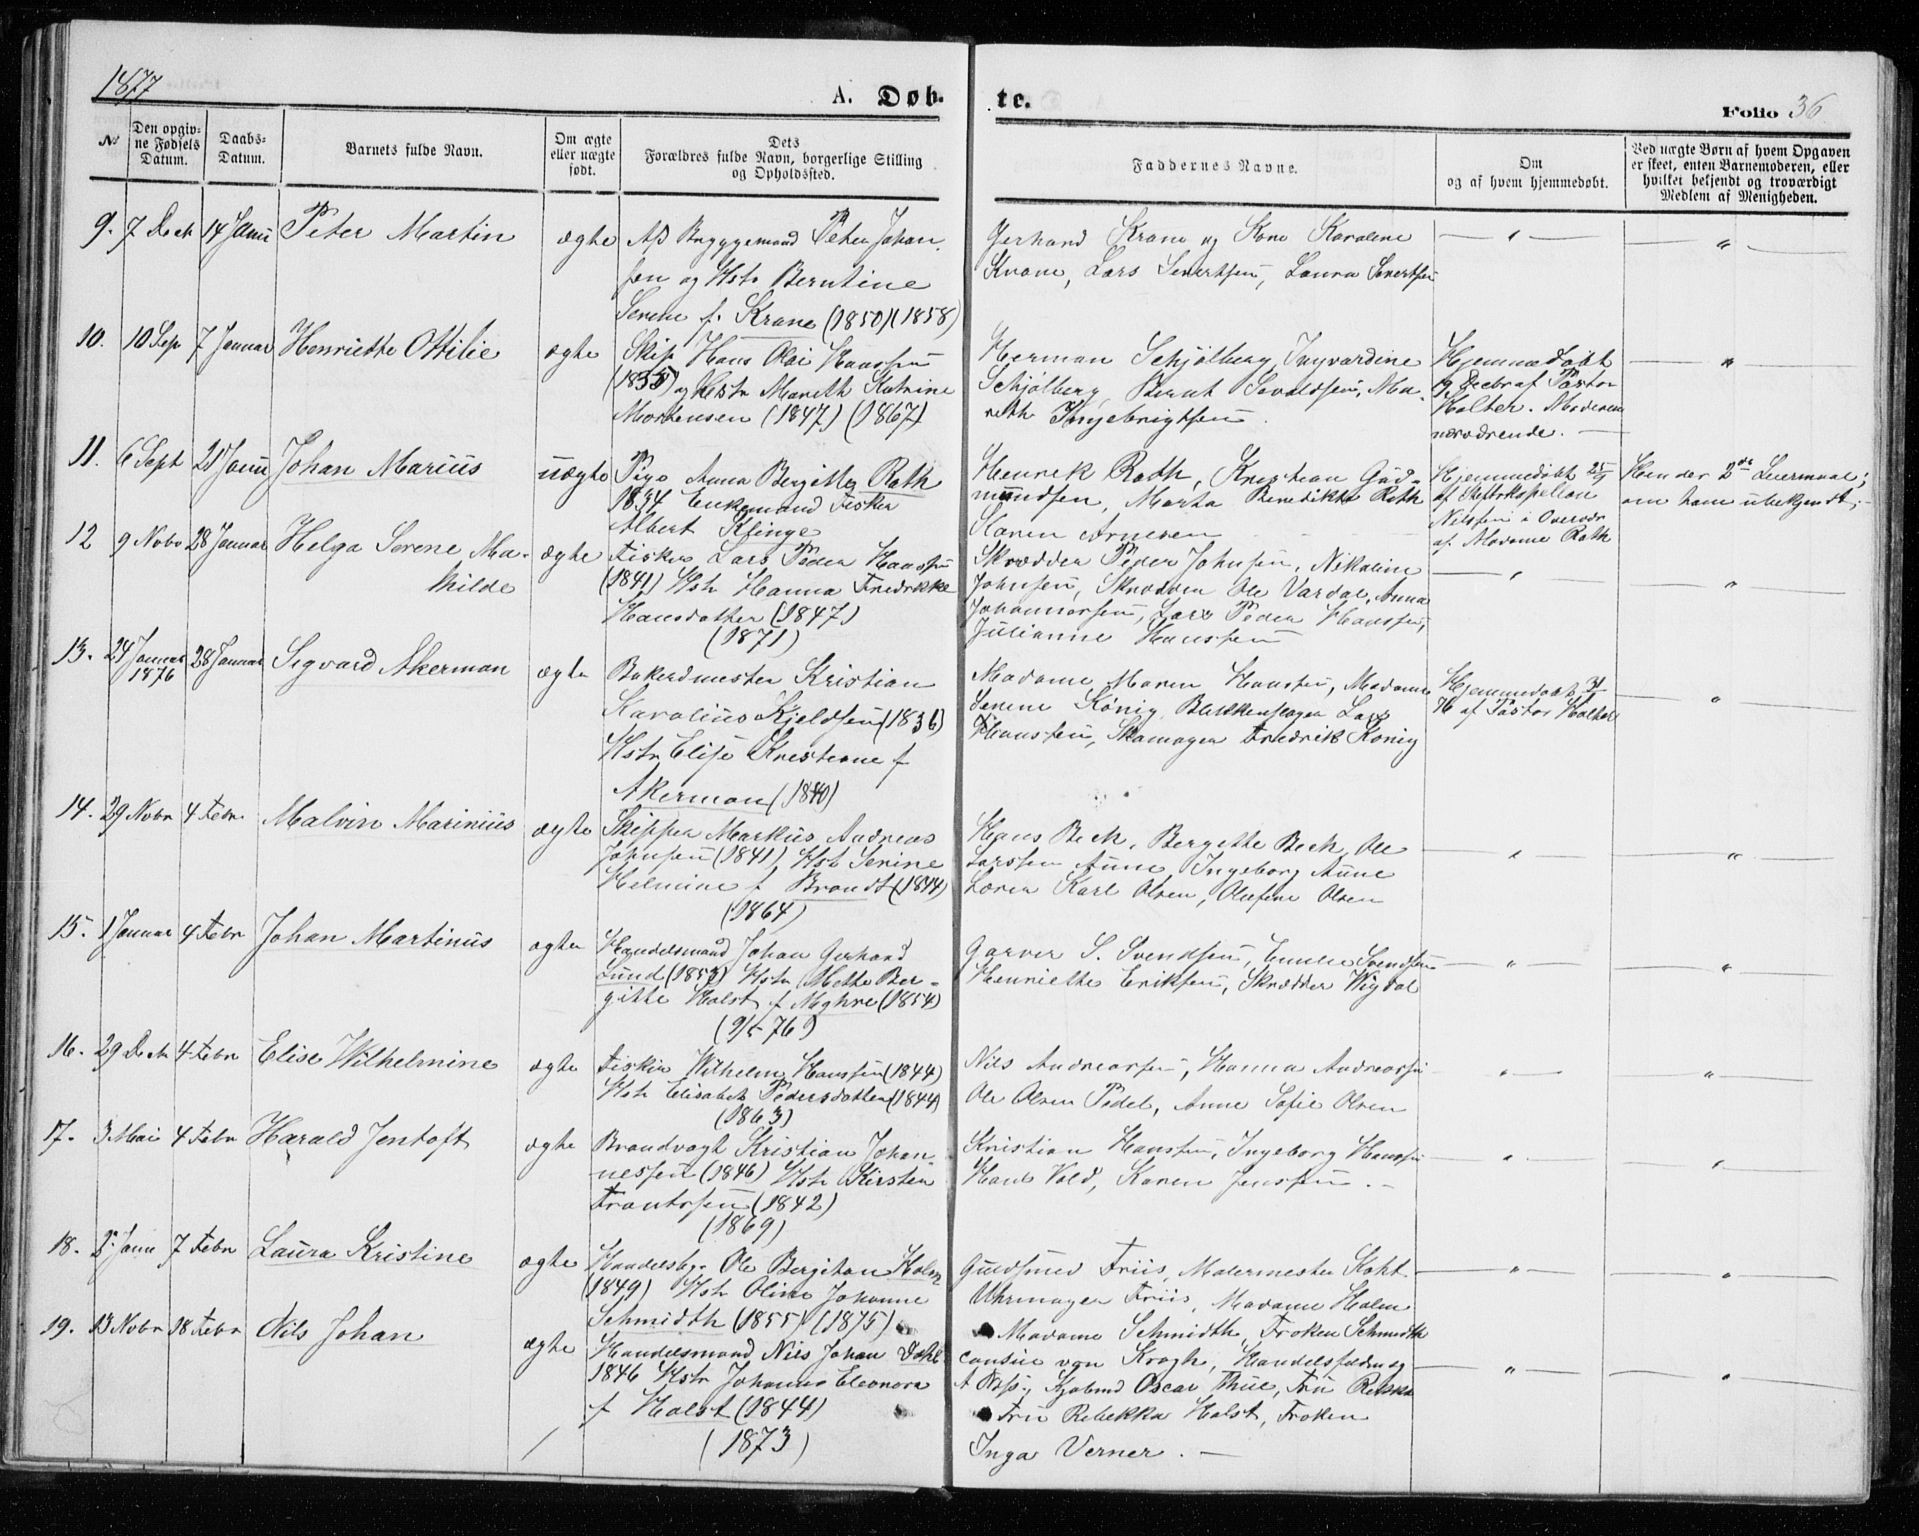 1877
A. Døb-
te.
Folio 36
No
Den opgiv-
ne Fødsels
Datum.
Daabs-
Datum.
Barnets fulde Navn.
Om ægte
eller uægte
født.
Dets
Forældres fulde Navn, borgerlige Stilling
og Opholdsted.
Faddernes Navne.
Om
og af hvem hjemmedøbt.
Ved uægte Børn af hvem Opgaven
er skeet, enten Barnemoderen, eller
hvilket bekjendt og troværdigt
Medlem af Menigheden.
9. 7 Decb 14 Janu Peter Martin ægte Bryggemand Peter Johan-
sen og Hstr Berntine
Serene f. Krane (1850) (1858)
Gerhard Krane og Kone Karoline
Krane, Lars Sivertsen, Laura Sivertsen
10. 10 Sep 7 Januar Henriette Ottilie ægte Skip Hans Olai Hanssen
(1835) og Hstr Mareth Katrine
Mortensen (1847) (1867)
Herman Schjølberg, Ingvardine
Schjølberg, Bernt Sivaldsen, Ma-
reth Ingebrigtsen
Hjemmedøbt
19 Decbr af Pastor
Halter. Moderen
nærværende.
11. 6 Sept 21 Janu Johan Marius uægte Pige Anna Bergitte Roth
1834 Enkemand Fisker
Albert Klinge
Henrik Roth, Kristian Gud-
mundsen, Marta Benedikte Roth
Karen Arnesen
Hjemmedøbt
af Stiftskapellan
Nilssen i Overvær
af Madame Roth
Hendes 2de Leiermaal;
om ham ubekjendt,
12 9 Nobr 28 Januar Helga Serene Ma-
thilde
ægte Fisker Lars Peder Hanssen
(1841) Hstr Hanna Fredrikke
Hansdatter (1847)
(1871)
Skrædder Peder Johnsen, Nikoline
Johnsen, Skrædder Ole Vardal, Anna
Johannessen, Lars Peder Hanssen,
Julianne Hanssen
13. 24 Januar
1876
28 Januar Sigvard Akerman ægte Bakermester Kristian
Karolius Kjeldsen (1836)
Hstr Elise Kristiane f
Akerman (1840)
Madame Maren Hanssen, Madame
Serene König, Blikkenslager Lars
Hanssen, Skomager Fredrik König
Hjemmedøbt
76 af Pastor Halter
14. 29 Nobr 4 Febr. Malvin Marinius ægte Skipper Markus Andreas
Johnsen (1841) Hst Serine
Helmine f Brandt (1844)
(1864)
Hans Bech, Bergette Bech, Ole
Larssen Aune, Ingeborg Aune
Lærer Karl Olsen, Olufine Olsen
15. 1 Januar 4 Febr Johan Martinus ægte Handelsmand Johan Gerhard
Lund (1853) Hstr Mette Ber-
gitte Holst f Myhre (1854)
(9/5 76)
Garver S. Svendsen, Emilie Svendsen
Henriette Eriksen, Skrædder Wigdal
16. 29 Decb 4 Febr Elise Wilhelmine ægte Fisker Wilhelm Hanssen (1844)
Hstr Elisabet Pedersdatter (1844)
(1863)
Nils Andreassen, Hanna Andreassen
Ole Olsen Pedel, Anne Sofie Olsen
17. 3 Mai 4 Febr Harald Jentoft ægte Brandvagt Kristian Johan-
nessen (1846) Hstr Kirsten
Frantssen (1842)
(1869)
Kristian Hanssen, Ingeborg Hanssen
Hans Vold, Karen Jenssen.
18. 2. Janu 7 Febr Laura Kristine ægte Handelsbg. Ole Bergithon Holm
(1849) Hstr Oline Johanne
Schmidth (1855) (1875)
Guldsmed Friis, Malermester Koht
Uhrmager Friis, Madame Holm
Madame Schmidth, Frøken Schmidth
19. 13 Nobr 18 Febr Nils Johan ægte Handelsmand Nils Johan Dahl
1846 Hstr Johanna Eleonora
f Holst (1844)
(1873)
Consul von Krogh, Handelsfuldmæg
Kjøbmd Oscar Thue, Fru
Fru Rebekka Holst, Frøken
Inga Verner.